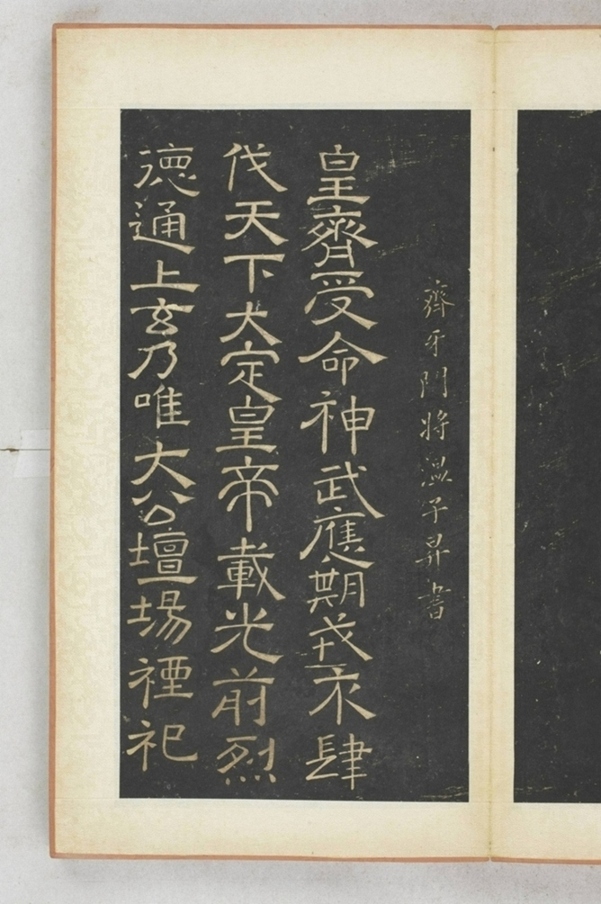 齊牙門將温子昇書
皇齊受命神武應期戎衣肆
伐天下大定皇帝載光前烈
德通上玄乃唯大公壇場禋祀